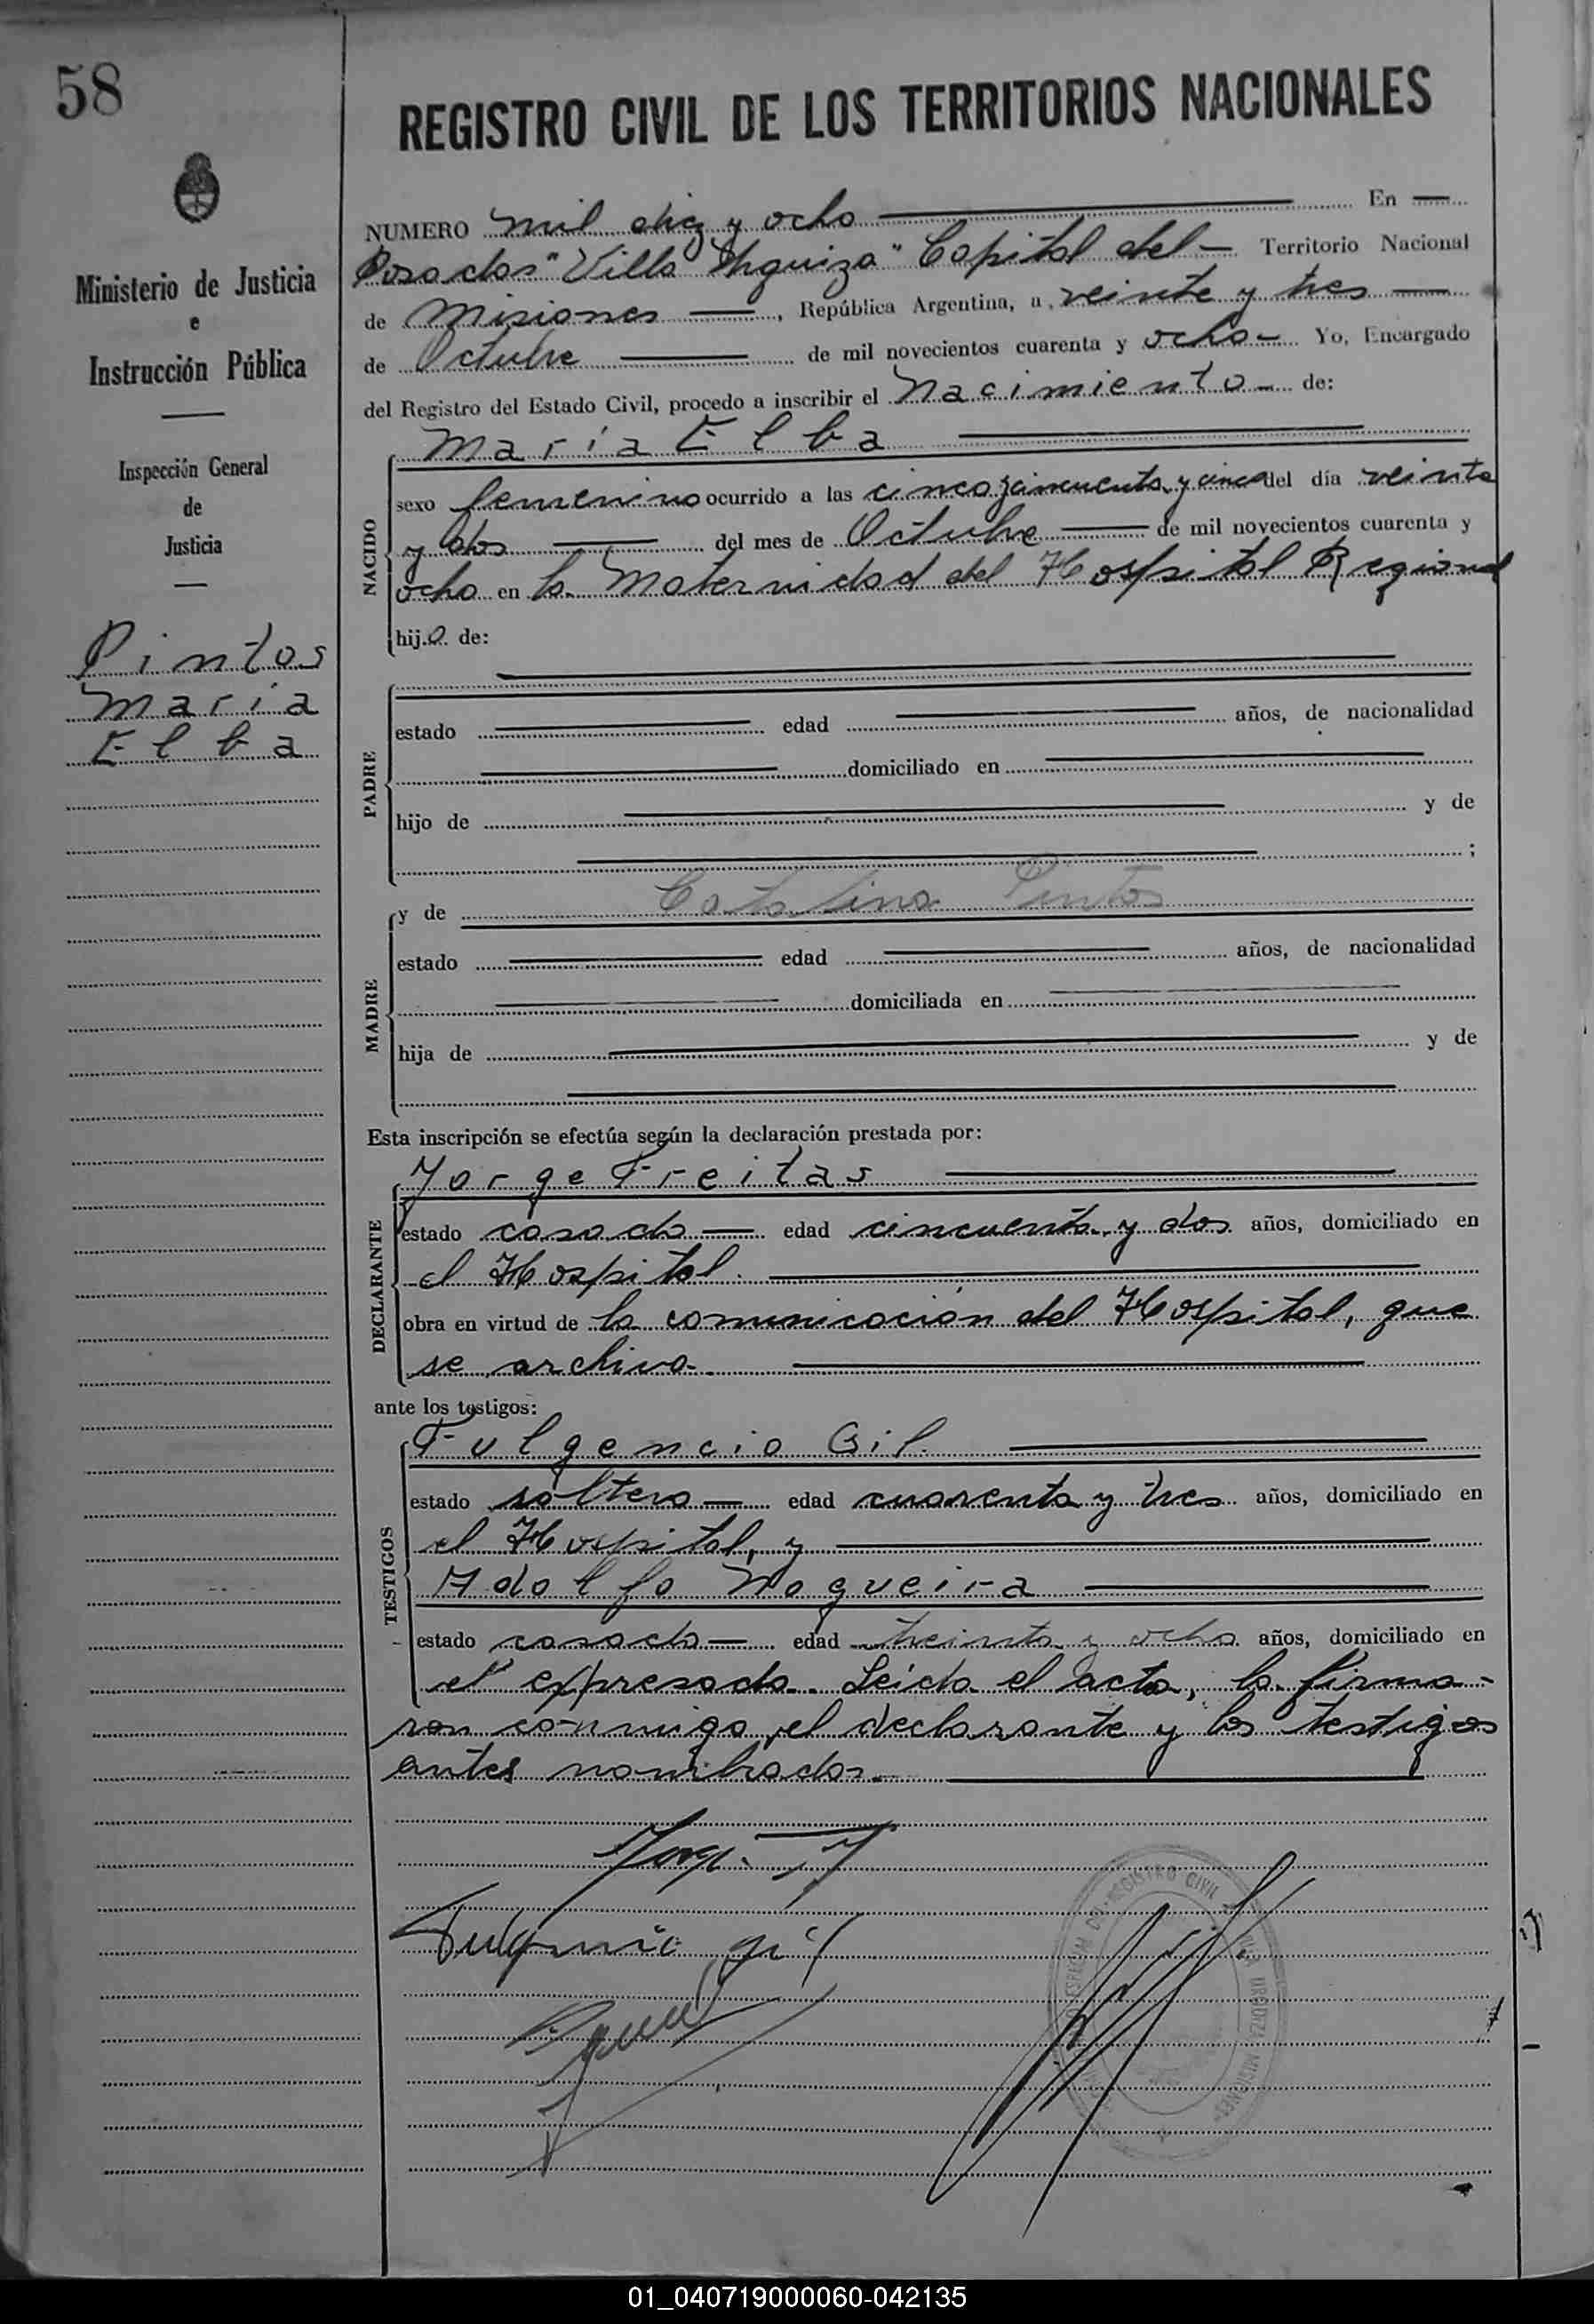 58
REGISTRO CIVIL DE LOS TERRITORIOS NACIONALES
Ministerio de Justicia
e
Instrucción Pública
Inspección General
de
Justicia
Pintos
María
Elba
NUMERO mil diez y ocho En
Posadas "Villa Urquiza" Capital del Territorio Nacional
de Misiones, República Argentina, a veinte y tres
de Octubre de mil novecientos cuarenta y ocho Yo, Encargado
del Registro del Estado Civil, procedo a inscribir el Nacimiento de:
María Elba
NACIDO
sexo femenino ocurrido a las cinco y cincuenta y cinco del día veinte
y dos del mes de Octubre de mil novecientos cuarenta y
ocho en la Maternidad del Hospital Regional
hija de:
PADRE
estado edad años, de nacionalidad
domiciliado en
hijo de y de
;
MADRE
y de Catalina Pintos
estado edad años, de nacionalidad
domiciliada en
hija de y de
Esta inscripción se efectúa según la declaración prestada por:
Jorge Freitas
DECLARANTE
estado casado edad cincuenta y dos años, domiciliado en
el Hospital.
obra en virtud de la comunicación del Hospital, que
se archiva.
ante los testigos:
Fulgencio Gil
TESTIGOS
estado soltero edad cuarenta y tres años, domiciliado en
el Hospital, y
Adolfo Nogueira
estado casado edad treinta y ocho años, domiciliado en
el expresado. Leída el acta, la firma-
ron conmigo, el declarante y los testigos
antes nombrados.
Jorge
Fulgencio Gil
REGISTRO CIVIL
VILLA URQUIZA MISIONES
01_040719000060-042135